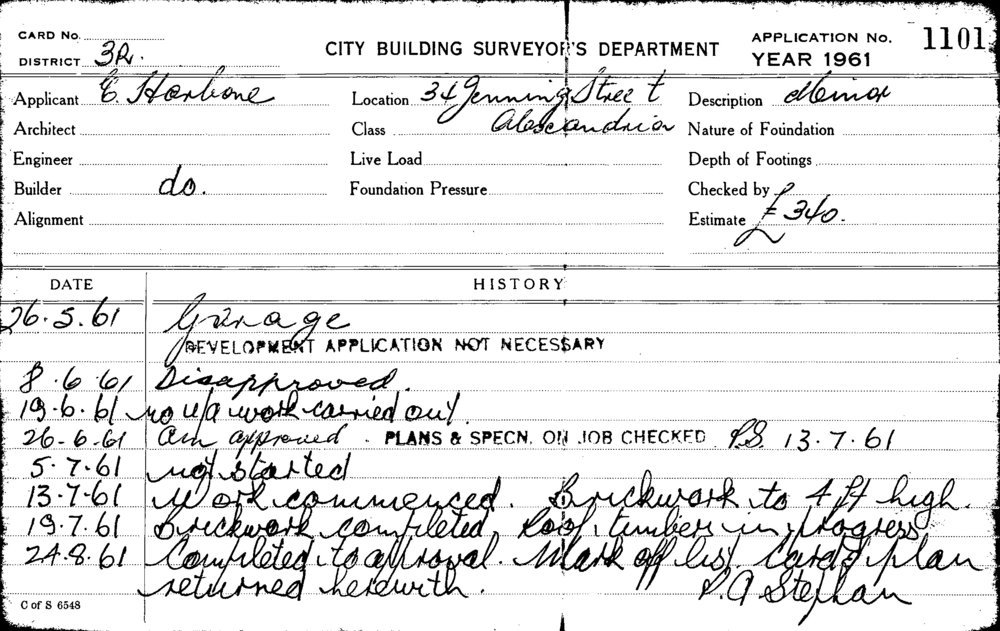 CARD No.
DISTRICT 3R.
CITY BUILDING SURVEYOR'S DEPARTMENT
APPLICATION No. 1101
YEAR 1961
Applicant E. Harbone Location 34 Jenning Street Description Minor
Architect Class Alexandria Nature of Foundation
Engineer Live Load Depth of Footings
Builder do. Foundation Pressure Checked by
Alignment Estimate £340.
DATE HISTORY
26.5.61 Garage
DEVELOPMENT APPLICATION NOT NECESSARY
8.6.61 Disapproved.
19.6.61 no u/a work carried out
26-6-61 Am approved. PLANS & SPECN. ON JOB CHECKED P.S. 13.7.61
5.7.61 not started
13-7-61 Work commenced. Brickwork to 4 ft high.
19.7.61 Brickwork completed, Roof timber in progress
24.8.61 Completed to approval. Mark off list, card & plan
returned herewith. P.A Stephan
C of S 6548